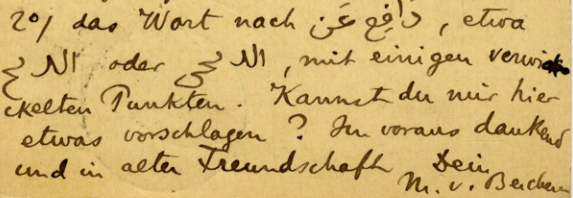 2°/ das Wort nach دافع عن, etwa
oder, mit einigen verwi-
ckelten Punkten. Kannst du mir hier
etwas vorschlagen? Im voraus dankend
und in alter Freundschaft Dein
M. v. Berchem